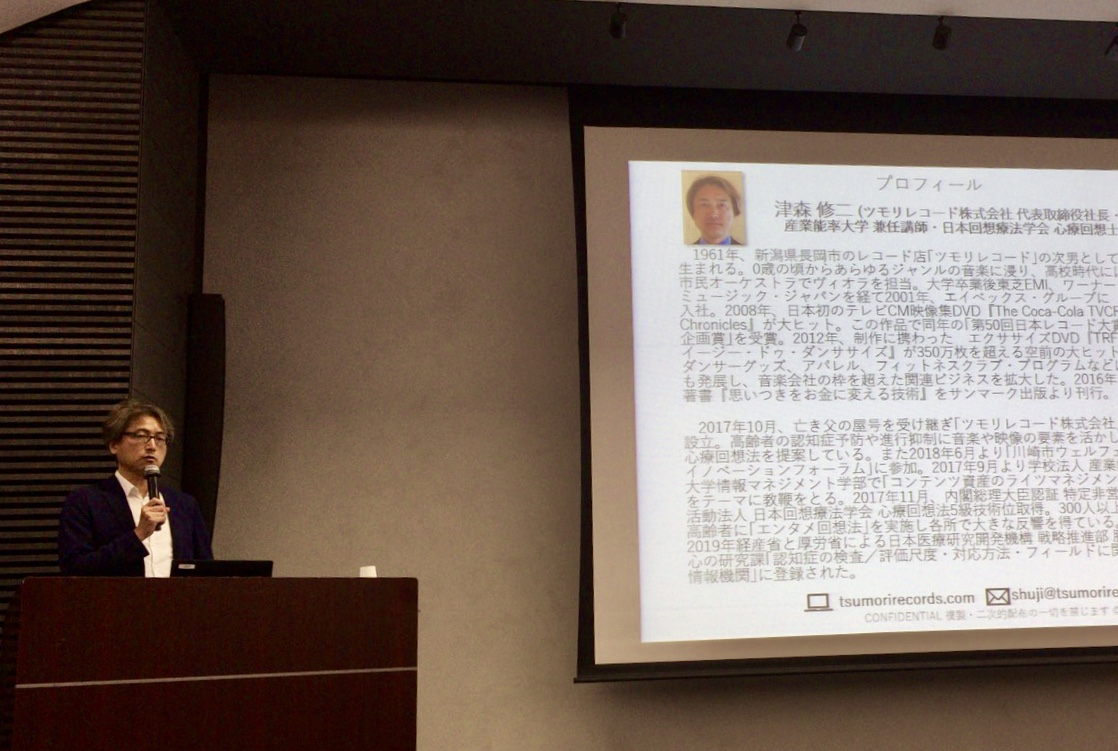 プロフィール
津森 修二 (ツモリレコード株式会社 代表取締役社長
産業能率大学 兼任講師・日本回想療法学会 心療回想士
1961年、新潟県長岡市のレコード店「ツモリレコード」の次男として
生まれる。0歳の頃からあらゆるジャンルの音楽に浸り、高校時代に
市民オーケストラでヴィオラを担当。大学卒業後東芝EMI、ワーナー
ミュージック・ジャパンを経て2001年、エイベックス・グループに
入社。2008年、日本初のテレビCM映像集DVD『The Coca-Cola TVCF
Chronicles』が大ヒット。この作品で同年の「第50回日本レコード大
企画賞」を受賞。2012年、制作に携わった エクササイズDVD『TRF
イージー・ドゥ・ダンササイズ』が350万枚を超える空前の大ヒット
ダンサーグッズ、アパレル、フィットネスクラブ・プログラムなど
も発展し、音楽会社の枠を超えた関連ビジネスを拡大した。2016年
著書『思いつきをお金に変える技術』をサンマーク出版より刊行。
2017年10月、亡き父の屋号を受け継ぎ「ツモリレコード株式会社
設立。高齢者の認知症予防や進行抑制に音楽や映像の要素を活か
心療回想法を提案している。また2018年6月より「川崎市ウェルフ
イノベーションフォーラム」に参加。2017年9月より学校法人 産業
大学情報マネジメント学部で「コンテンツ資産のライツマネジメン
をテーマに教鞭をとる。2017年11月、内閣総理大臣認証 特定非営
活動法人 日本回想療法学会 心療回想法5級技術位取得。300人以
高齢者に「エンタメ回想法」を実施し各所で大きな反響を得ている
2019年経産省と厚労省による日本医療研究開発機構 戦略推進部
心の研究課「認知症の検査／評価尺度・対応方法・フィールドに
情報機関」に登録された。
tsumorirecords.com shuji@tsumorire
CONFIDENTIAL 複製・二次的配布の一切を禁じます